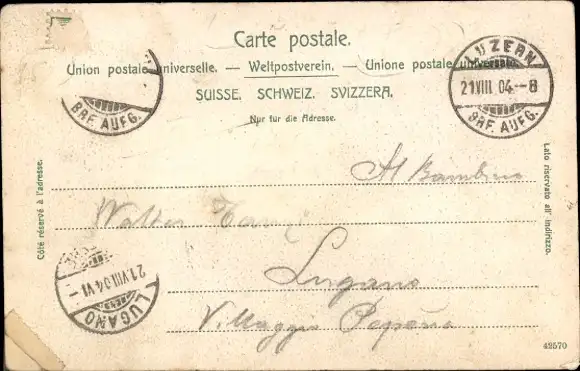 Carte postale.
Union postale universelle. — Weltpostverein. — Unione postale universale.
SUISSE. SCHWEIZ. SVIZZERA.
Nur für die Adresse.
LUZERN
21.VIII.04.-8
BRF. AUFG.
BRF. AUFG.
Côté réservé à l'adresse.
Lato riservato all' indirizzo.
Al Bambino
Walter
Lugano
Villaggio
LUGANO
21.VIII.04.VI-
42570